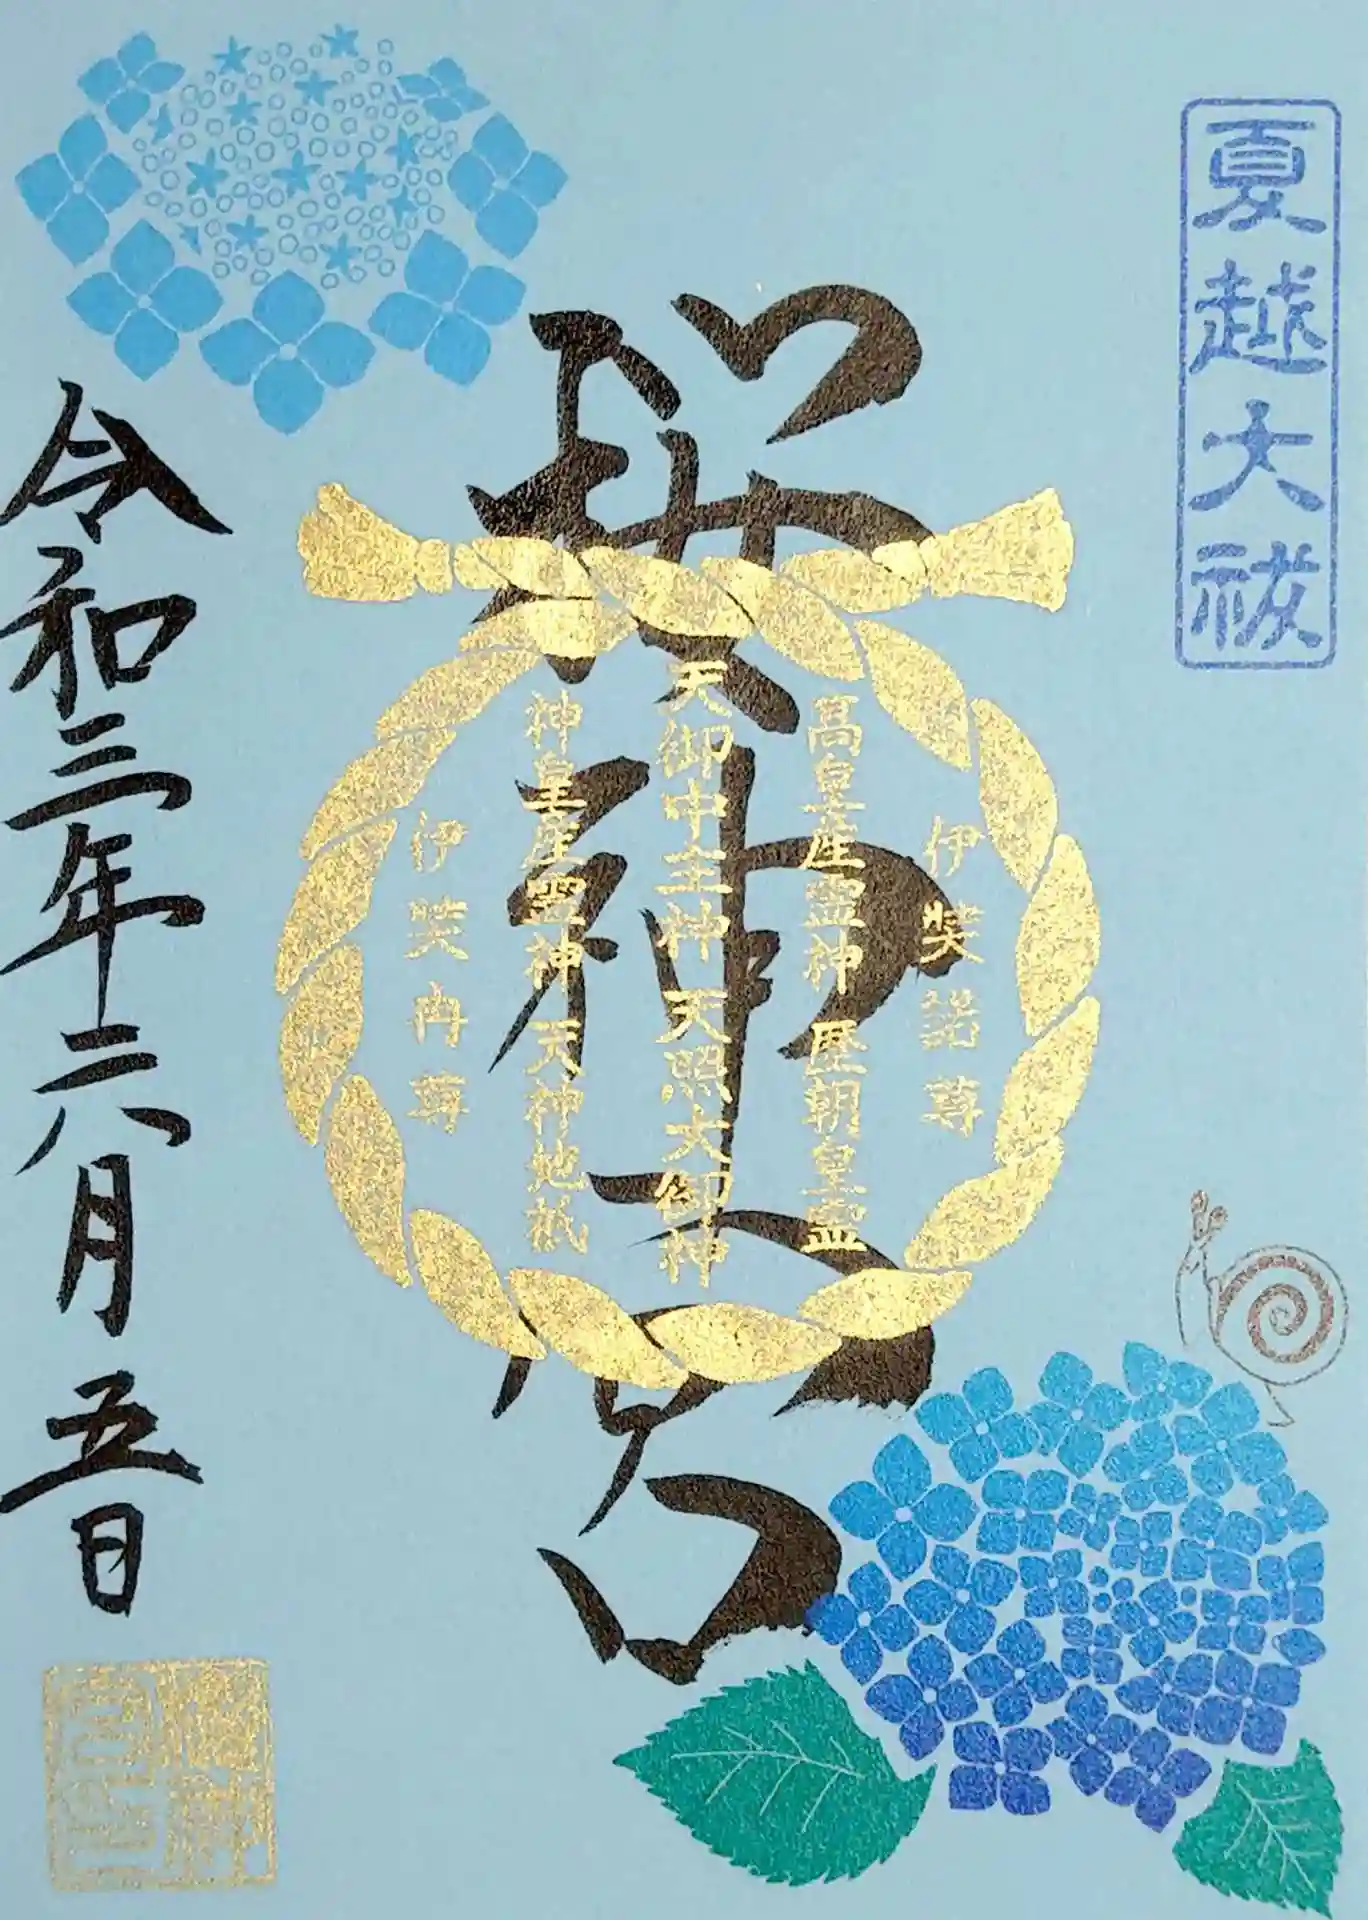 夏越大祓
櫻神宮
伊奘諾尊
高皇産霊神 歴朝皇霊
天御中主神 天照大御神
神皇産霊神 天神地祇
伊奘冉尊
令和三年六月五日